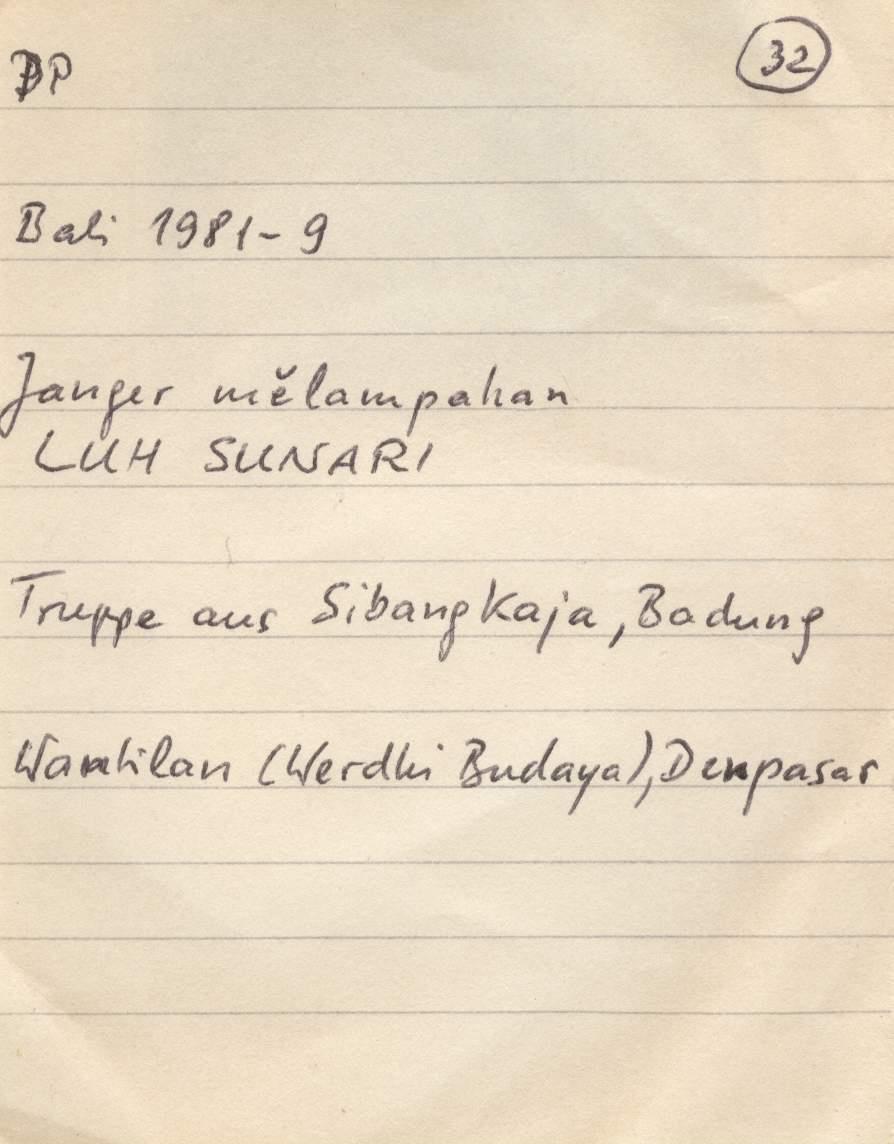 BP 32
Bali 1981-9
Janger mĕlampahan
LUH SUNARI
Truppe aus Sibang Kaja, Badung
Wantilan (Werdhi Budaya), Denpasar